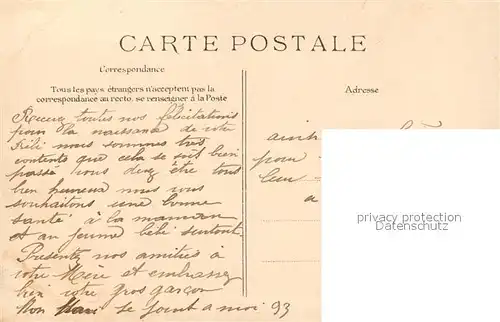 CARTE POSTALE
Correspondance
Tous les pays étrangers n'acceptent pas la
correspondance au recto, se renseigner à la Poste
Adresse
Recevez toutes nos félicitations
pour la naissance de votre
Bébé nous sommes très
contents que cela se soit bien
passé vous devez être tous
bien heureux nous vous
souhaitons une bonne
santé à la maman
et au jeune bébé surtout.
Présentez nos amitiés à
votre Mère et embrassez
bien votre gros garçon
Mon se joint a moi 93
pour
a
privacy protection
ansichtskarten-center.de